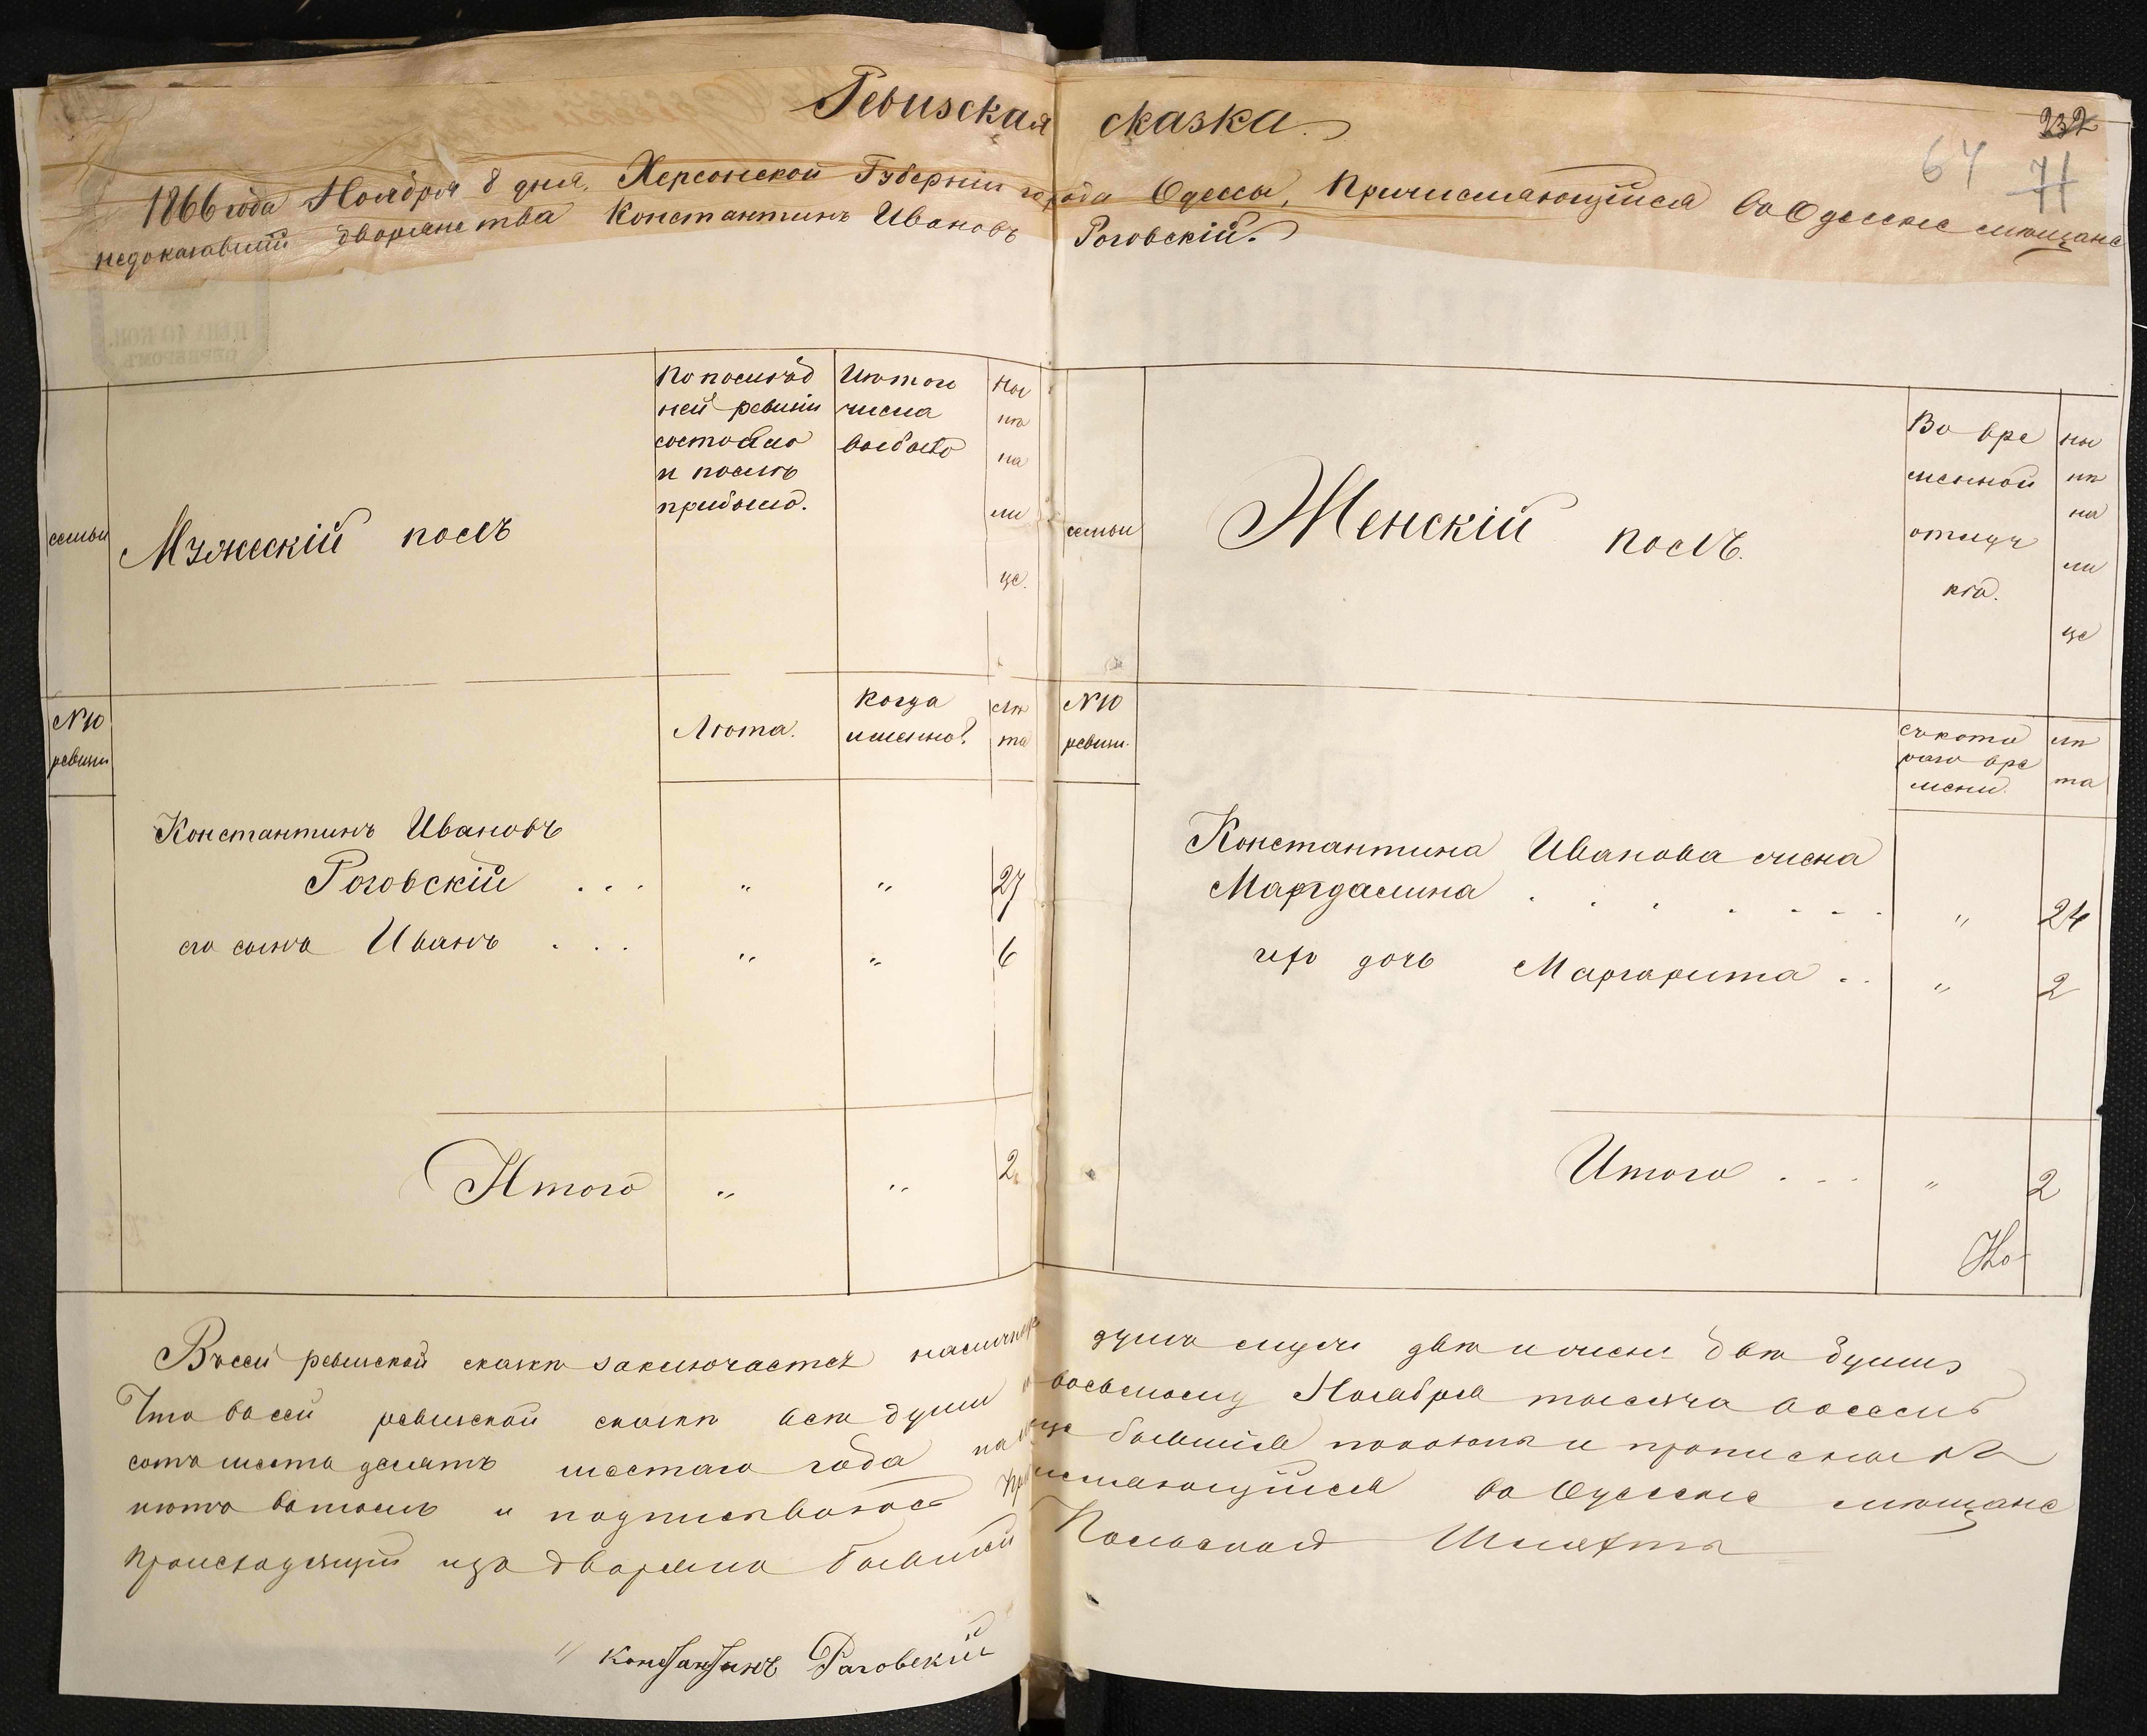 Ревизская сказка.
232
64 71
1866 года Ноября 8 дня, Херсонской Губерніи города Одессы, Причисляющійся во Одесскіе мѣщане
недоказавшій дворянства Константинъ Ивановъ Роговскій.
семьи
Мужескій полъ
По послѣд
ней ревизіи
состояло
и послѣ
прибыло.
Изъ того
числа
выбыло
Ны
нѣ
на
ли
це.
№10
ревизіи
Лѣта.
Когда
именно?
лѣ
та
Константинъ Ивановъ
Роговскій . . . " " 27
его сынъ Иванъ . . . " " 6
Итого " " 2
семьи
Женскій полъ.
Во вре
менной
отлуч
кѣ.
ны
нѣ
на
ли
це
№10
ревизіи.
съ кото
раго вре
мени.
лѣ
та
Константина Иванова жена
Магдалина . . . . - - - " 24
его дочь Маргарита . . " 2
Итого . - - - " 2
Но
В сей ревиской сказки заключается налично душъ мужс двѣ и женс двѣ души
Что во сей ревиской сказки всѣ души к восьмому Ноября тысяча восемь
сотъ шесть десятъ шестаго года на лице бывшіе показаны и прописныхъ
нѣтъ вотомъ и подписываюсь Причисляющійся во Одесскіе мѣщане
происходящій изъ дворянъ бывшей Польской Шляхты
Константинъ Роговскій